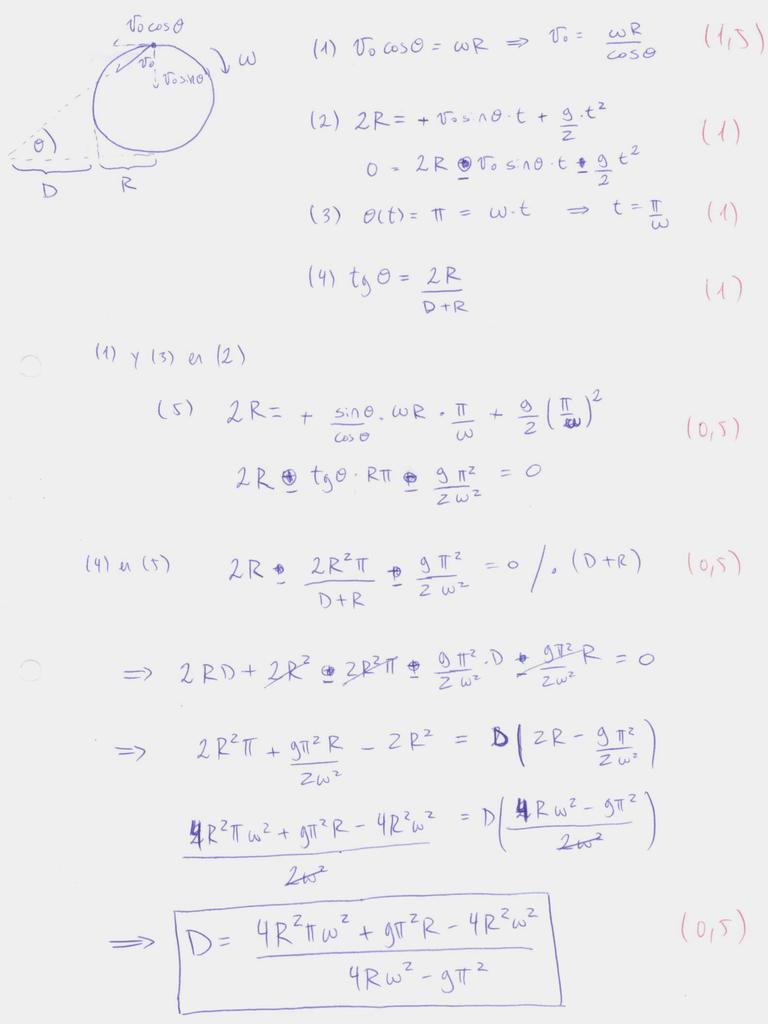 v₀cosθ
v₀
v₀sinθ
ω
θ
D
R
(1) v₀ cosθ = ωR ⇒ v₀ = ωR/cosθ (1,5)
(2) 2R = + v₀ sinθ·t + g/2·t² (1)
0 = 2R - v₀ sinθ·t - g/2 t²
(3) θ(t) = π = ω·t ⇒ t = π/ω (1)
(4) tgθ = 2R/(D+R) (1)
(1) y (3) en (2)
(5) 2R = + sinθ/cosθ · ωR · π/ω + g/2 (π/ω)² (0,5)
2R - tgθ·Rπ - gπ²/2ω² = 0
(4) en (5) 2R - 2R²π/(D+R) - gπ²/2ω² = 0 /·(D+R) (0,5)
⇒ 2RD + 2R² - 2R²π - gπ²/2ω²·D - gπ²/2ω² R = 0
⇒ 2R²π + gπ²R/2ω² - 2R² = D(2R - gπ²/2ω²)
(4R²πω² + gπ²R - 4R²ω²)/2ω² = D((4Rω² - gπ²)/2ω²)
⇒ D = (4R²πω² + gπ²R - 4R²ω²)/(4Rω² - gπ²) (0,5)